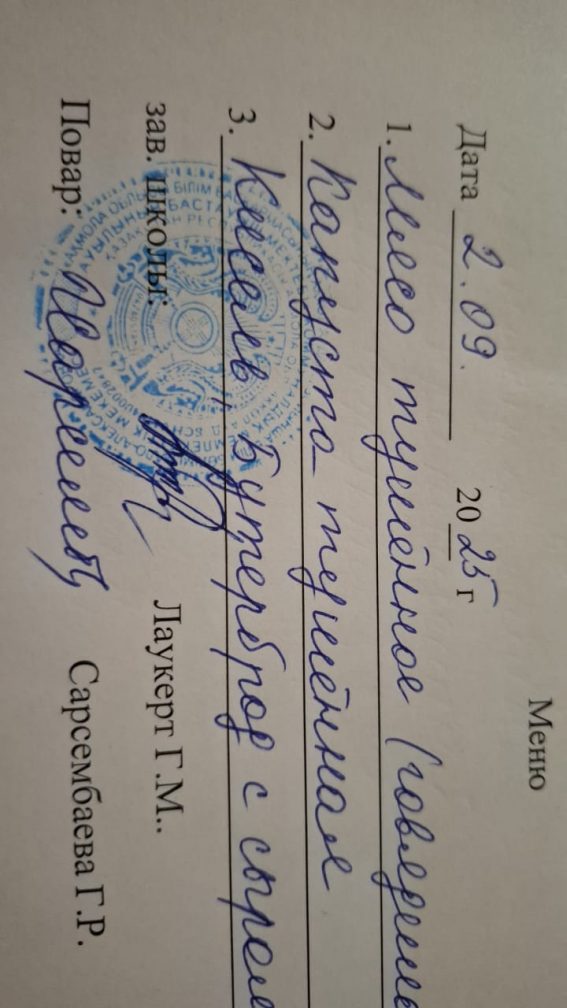 Меню
Дата 2.09. 2025 г
1. Мясо тушёное (говядина
2. Капуста тушённая
3. Кисель, Бутерброд с сыром
зав. школы: Лаукерт Г.М..
Повар: Сарсембаева Г.Р.